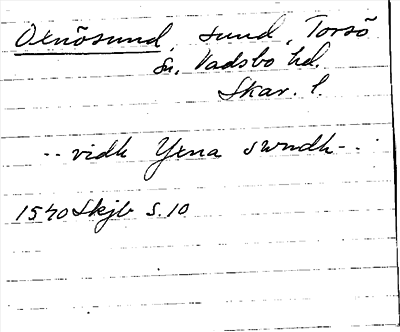 Oxnösund, sund, Torsö
sn. Vadsbo hd.
Skar. l.
-- vidh Yxna swndh --
1540 Skjb S. 10